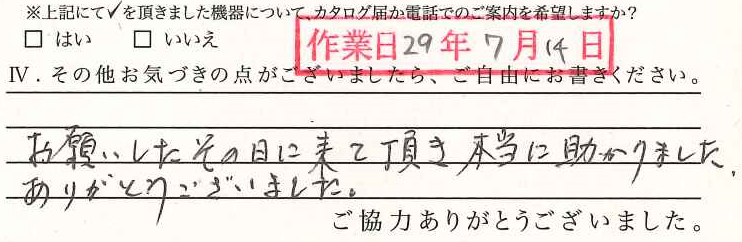 ※上記にて✓を頂きました機器について、カタログ届か電話でのご案内を希望しますか？
□ はい □ いいえ
作業日29年7月14日
Ⅳ．その他お気づきの点がございましたら、ご自由にお書きください。
お願いしたその日に来て頂き本当に助かりました。
ありがとうございました。
ご協力ありがとうございました。